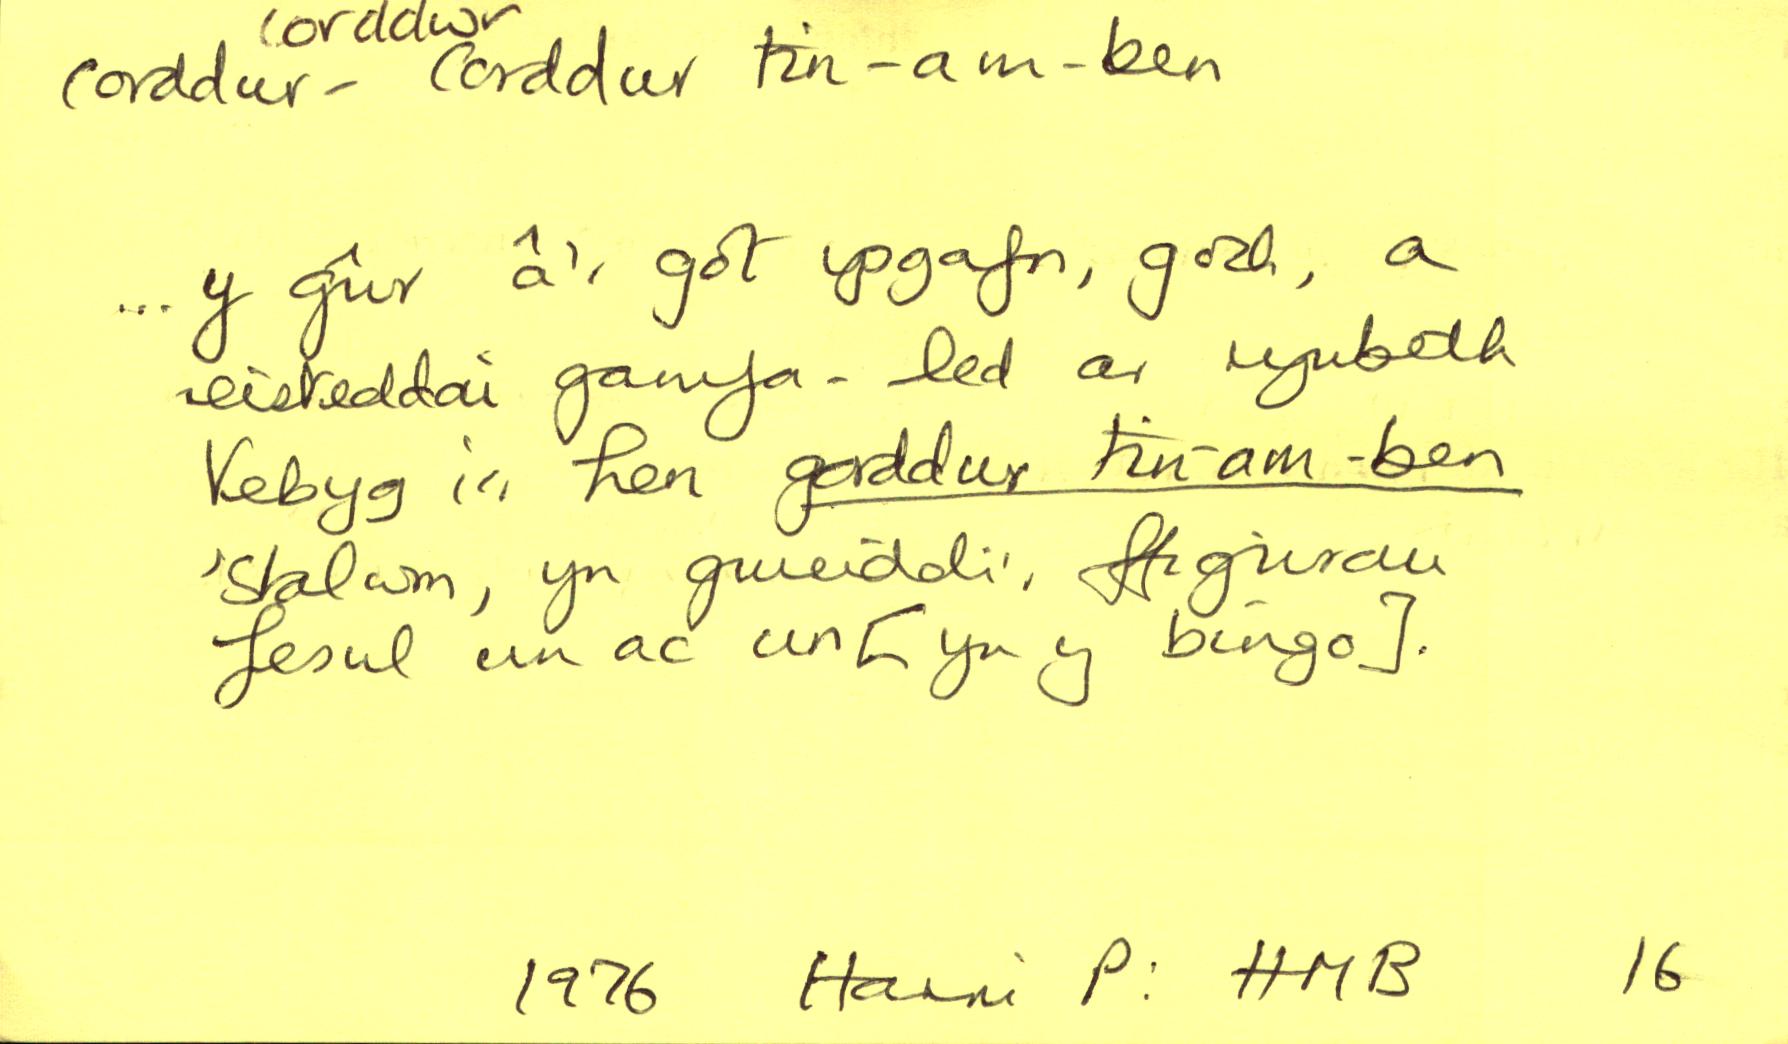 corddwr
corddwr - Corddwr tin-am-ben
... y gŵr â'i gôt ysgafn, goch, a
eisteddai gamfa-led ar rywbeth
tebyg i'r hen gorddwr tin-am-ben
'stalwm, yn gweiddi'r ffigurau
fesul un ac un [yn y bingo].
1976 Harri P: HMB 16